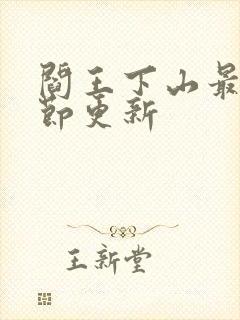 阎王下山最
节更新
王新堂